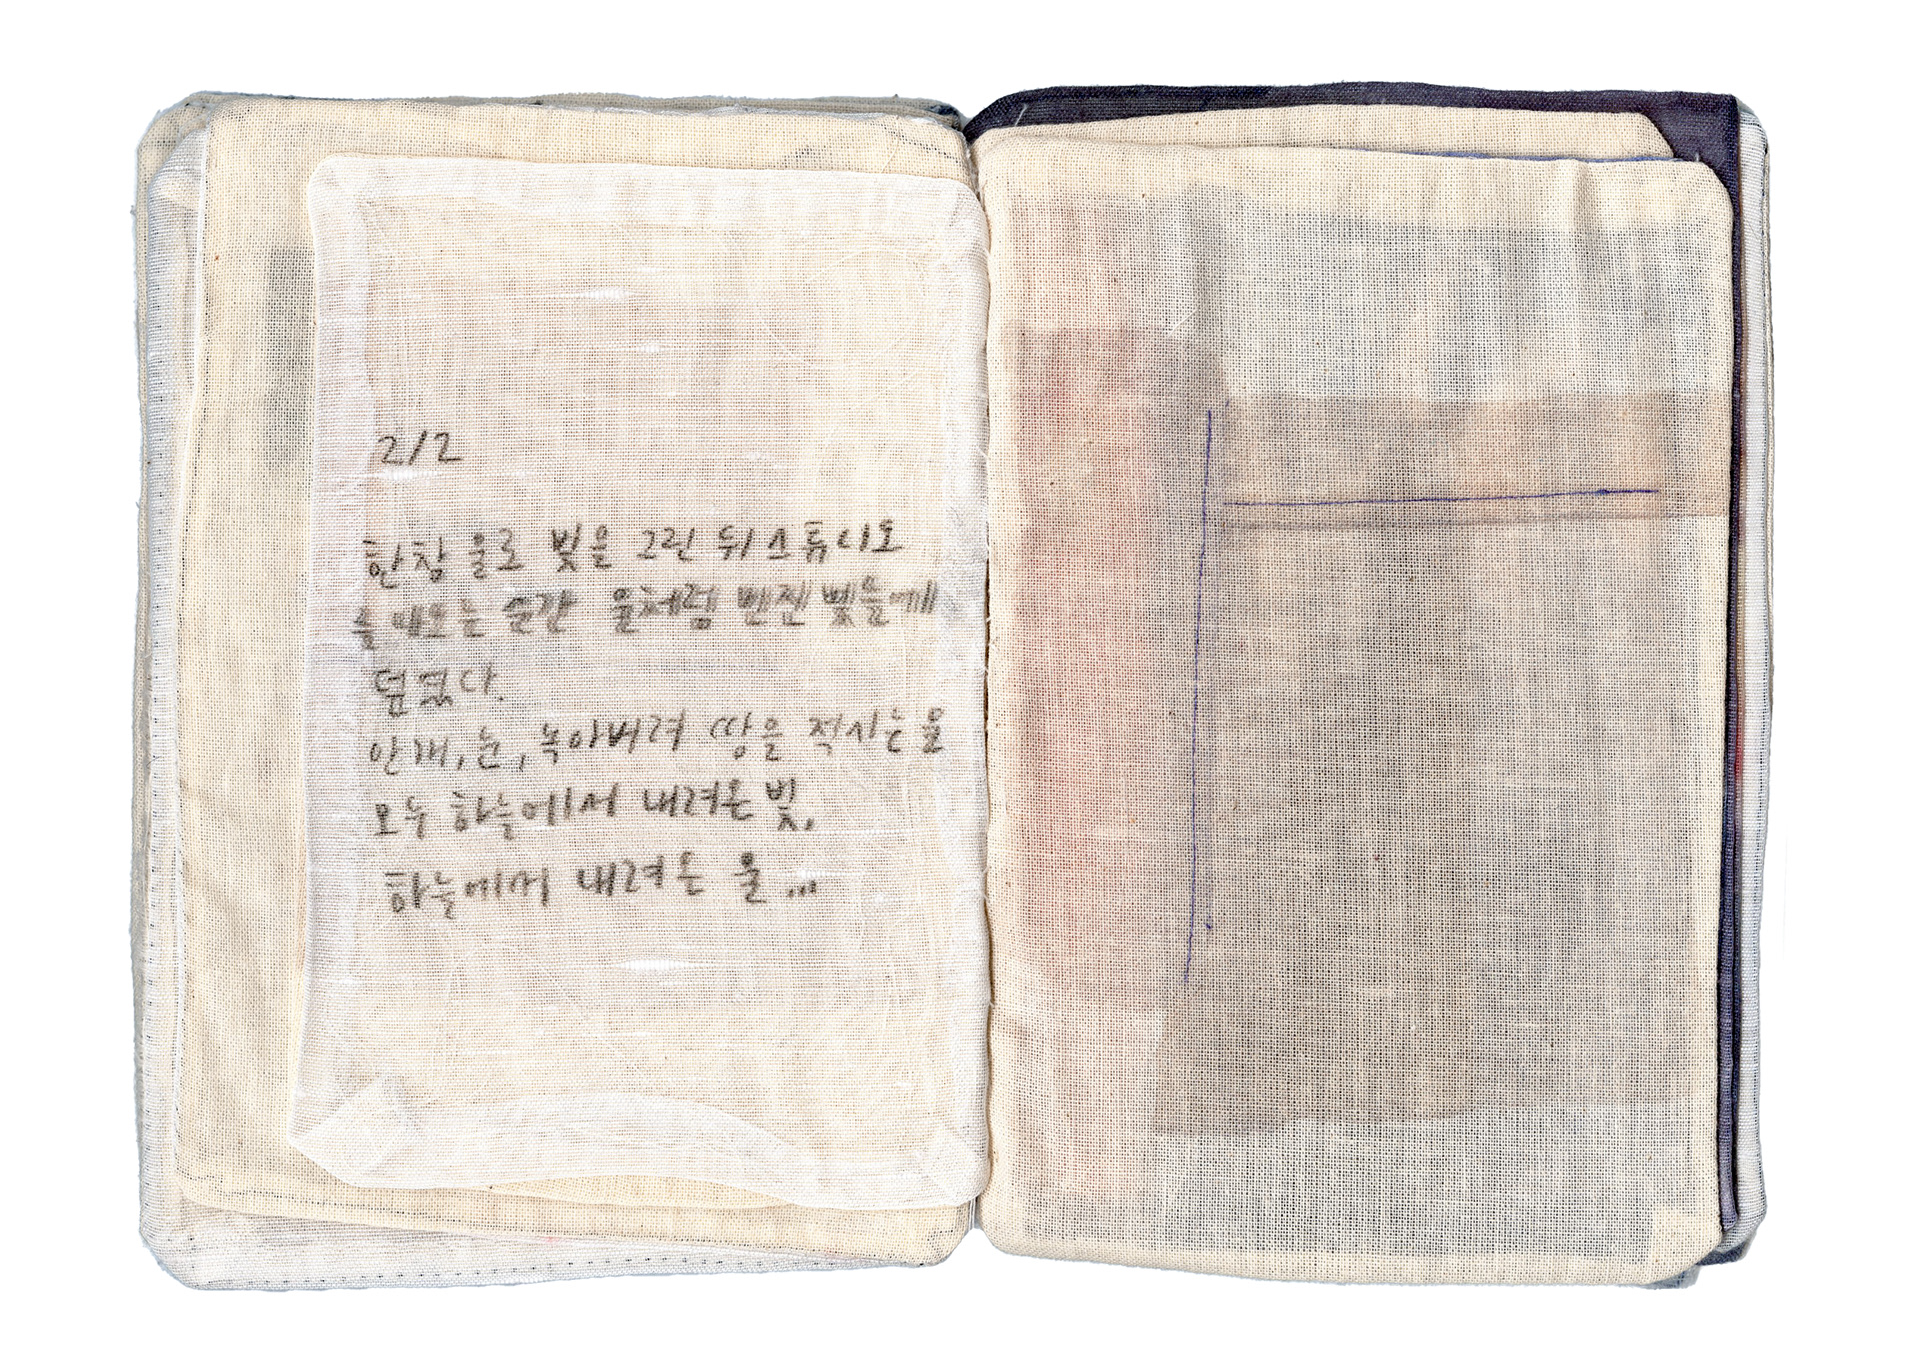 2/2
한참 물로 빛을 그린 뒤 스튜디오
를 순간 물처럼 번진 빛들에
덮였다.
안개, 눈, 녹아버려 땅을 적시는 물
모두 하늘에서 내려온 빛,
하늘에서 내려온 물...